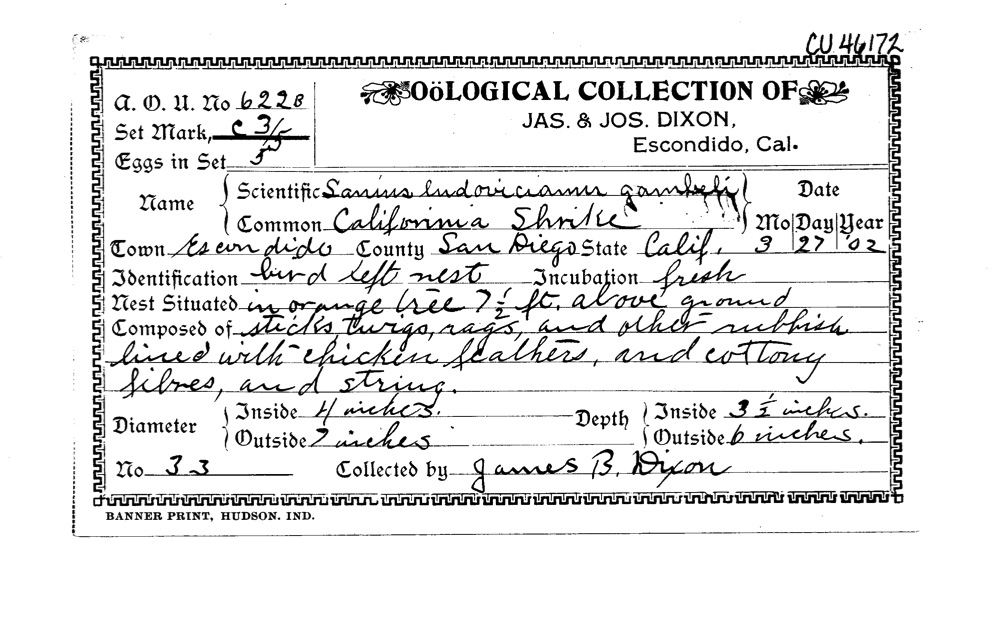 CU 46172
A. O. U. No 622b
OöLOGICAL COLLECTION OF
Set Mark, C 3/5
JAS. & JOS. DIXON,
Eggs in Set 5
Escondido, Cal.
Name
Scientific Lanius ludovicianus gambeli
Common California Shrike
Date
Mo Day Year
Town Escondido County San Diego State Calif. 3 27 '02
Identification bird left nest Incubation fresh
Nest Situated in orange tree 7 1/2 ft. above ground
Composed of sticks, twigs, rags, and other rubbish
lined with chicken feathers, and cottony
fibres, and string.
Diameter
Inside 4 inches.
Outside 7 inches
Depth
Inside 3 1/2 inches.
Outside 6 inches.
No 33 Collected by James B. Dixon
BANNER PRINT, HUDSON. IND.